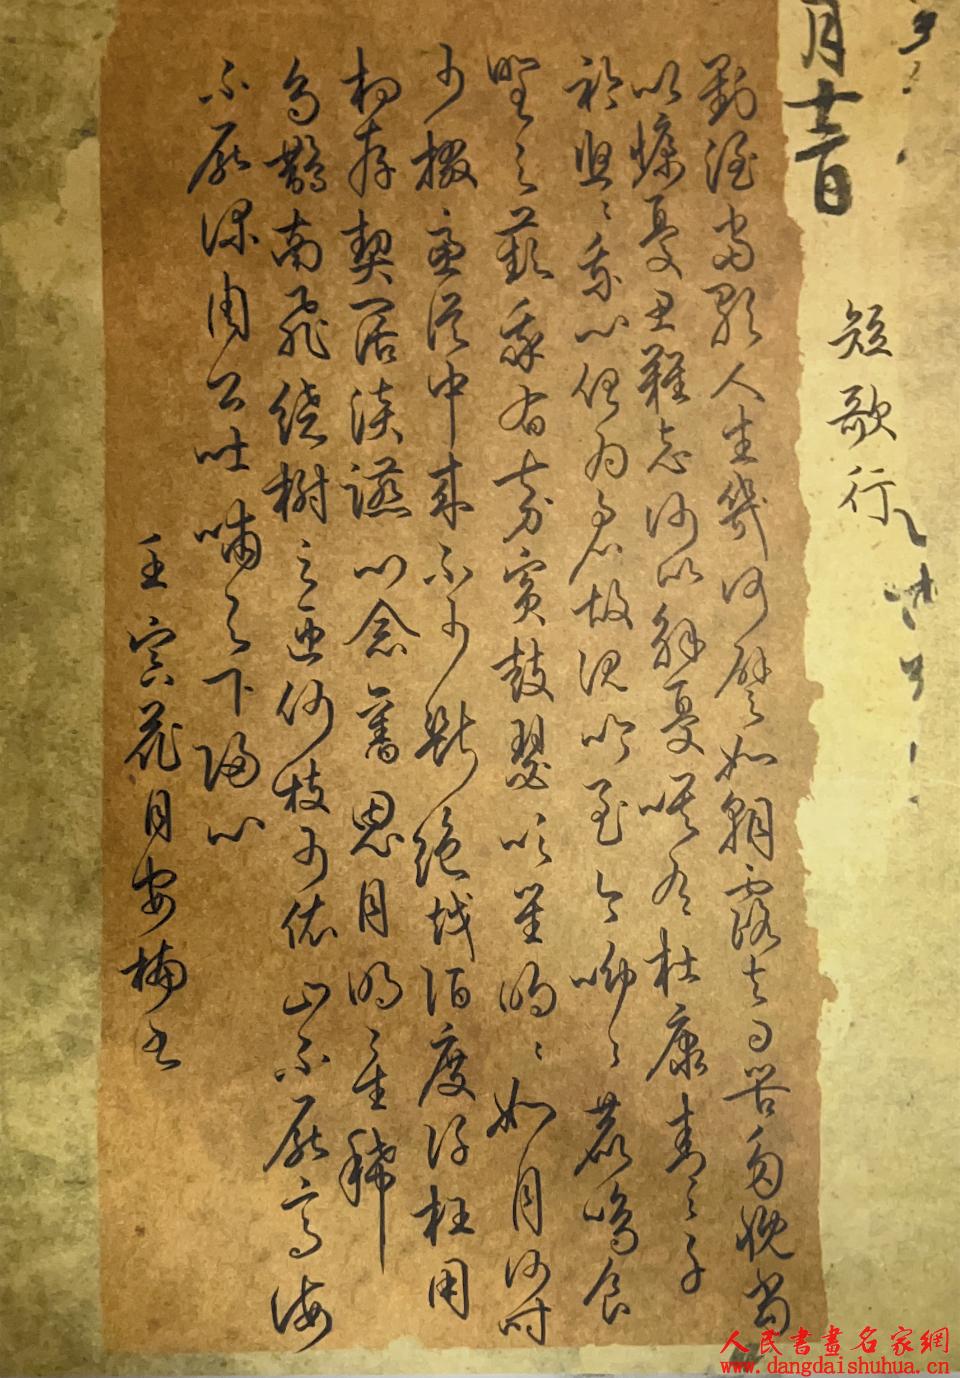 月十二日
短歌行
對酒當歌人生幾何譬如朝露去日苦多慨當
以慷憂思難忘何以解憂唯有杜康青々子
衿悠々我心但為君故沉吟至今呦々鹿鳴食
野之苹我有嘉賓鼓瑟吹笙明々如月何時
可掇憂從中來不可斷絕越陌度阡枉用
相存契闊談讌心念舊恩月明星稀
烏鵲南飛繞樹三匝何枝可依山不厭高海
不厭深周公吐哺天下歸心
壬寅花月安楠書
人民書畫名家網
www.dangdaishuhua.cn